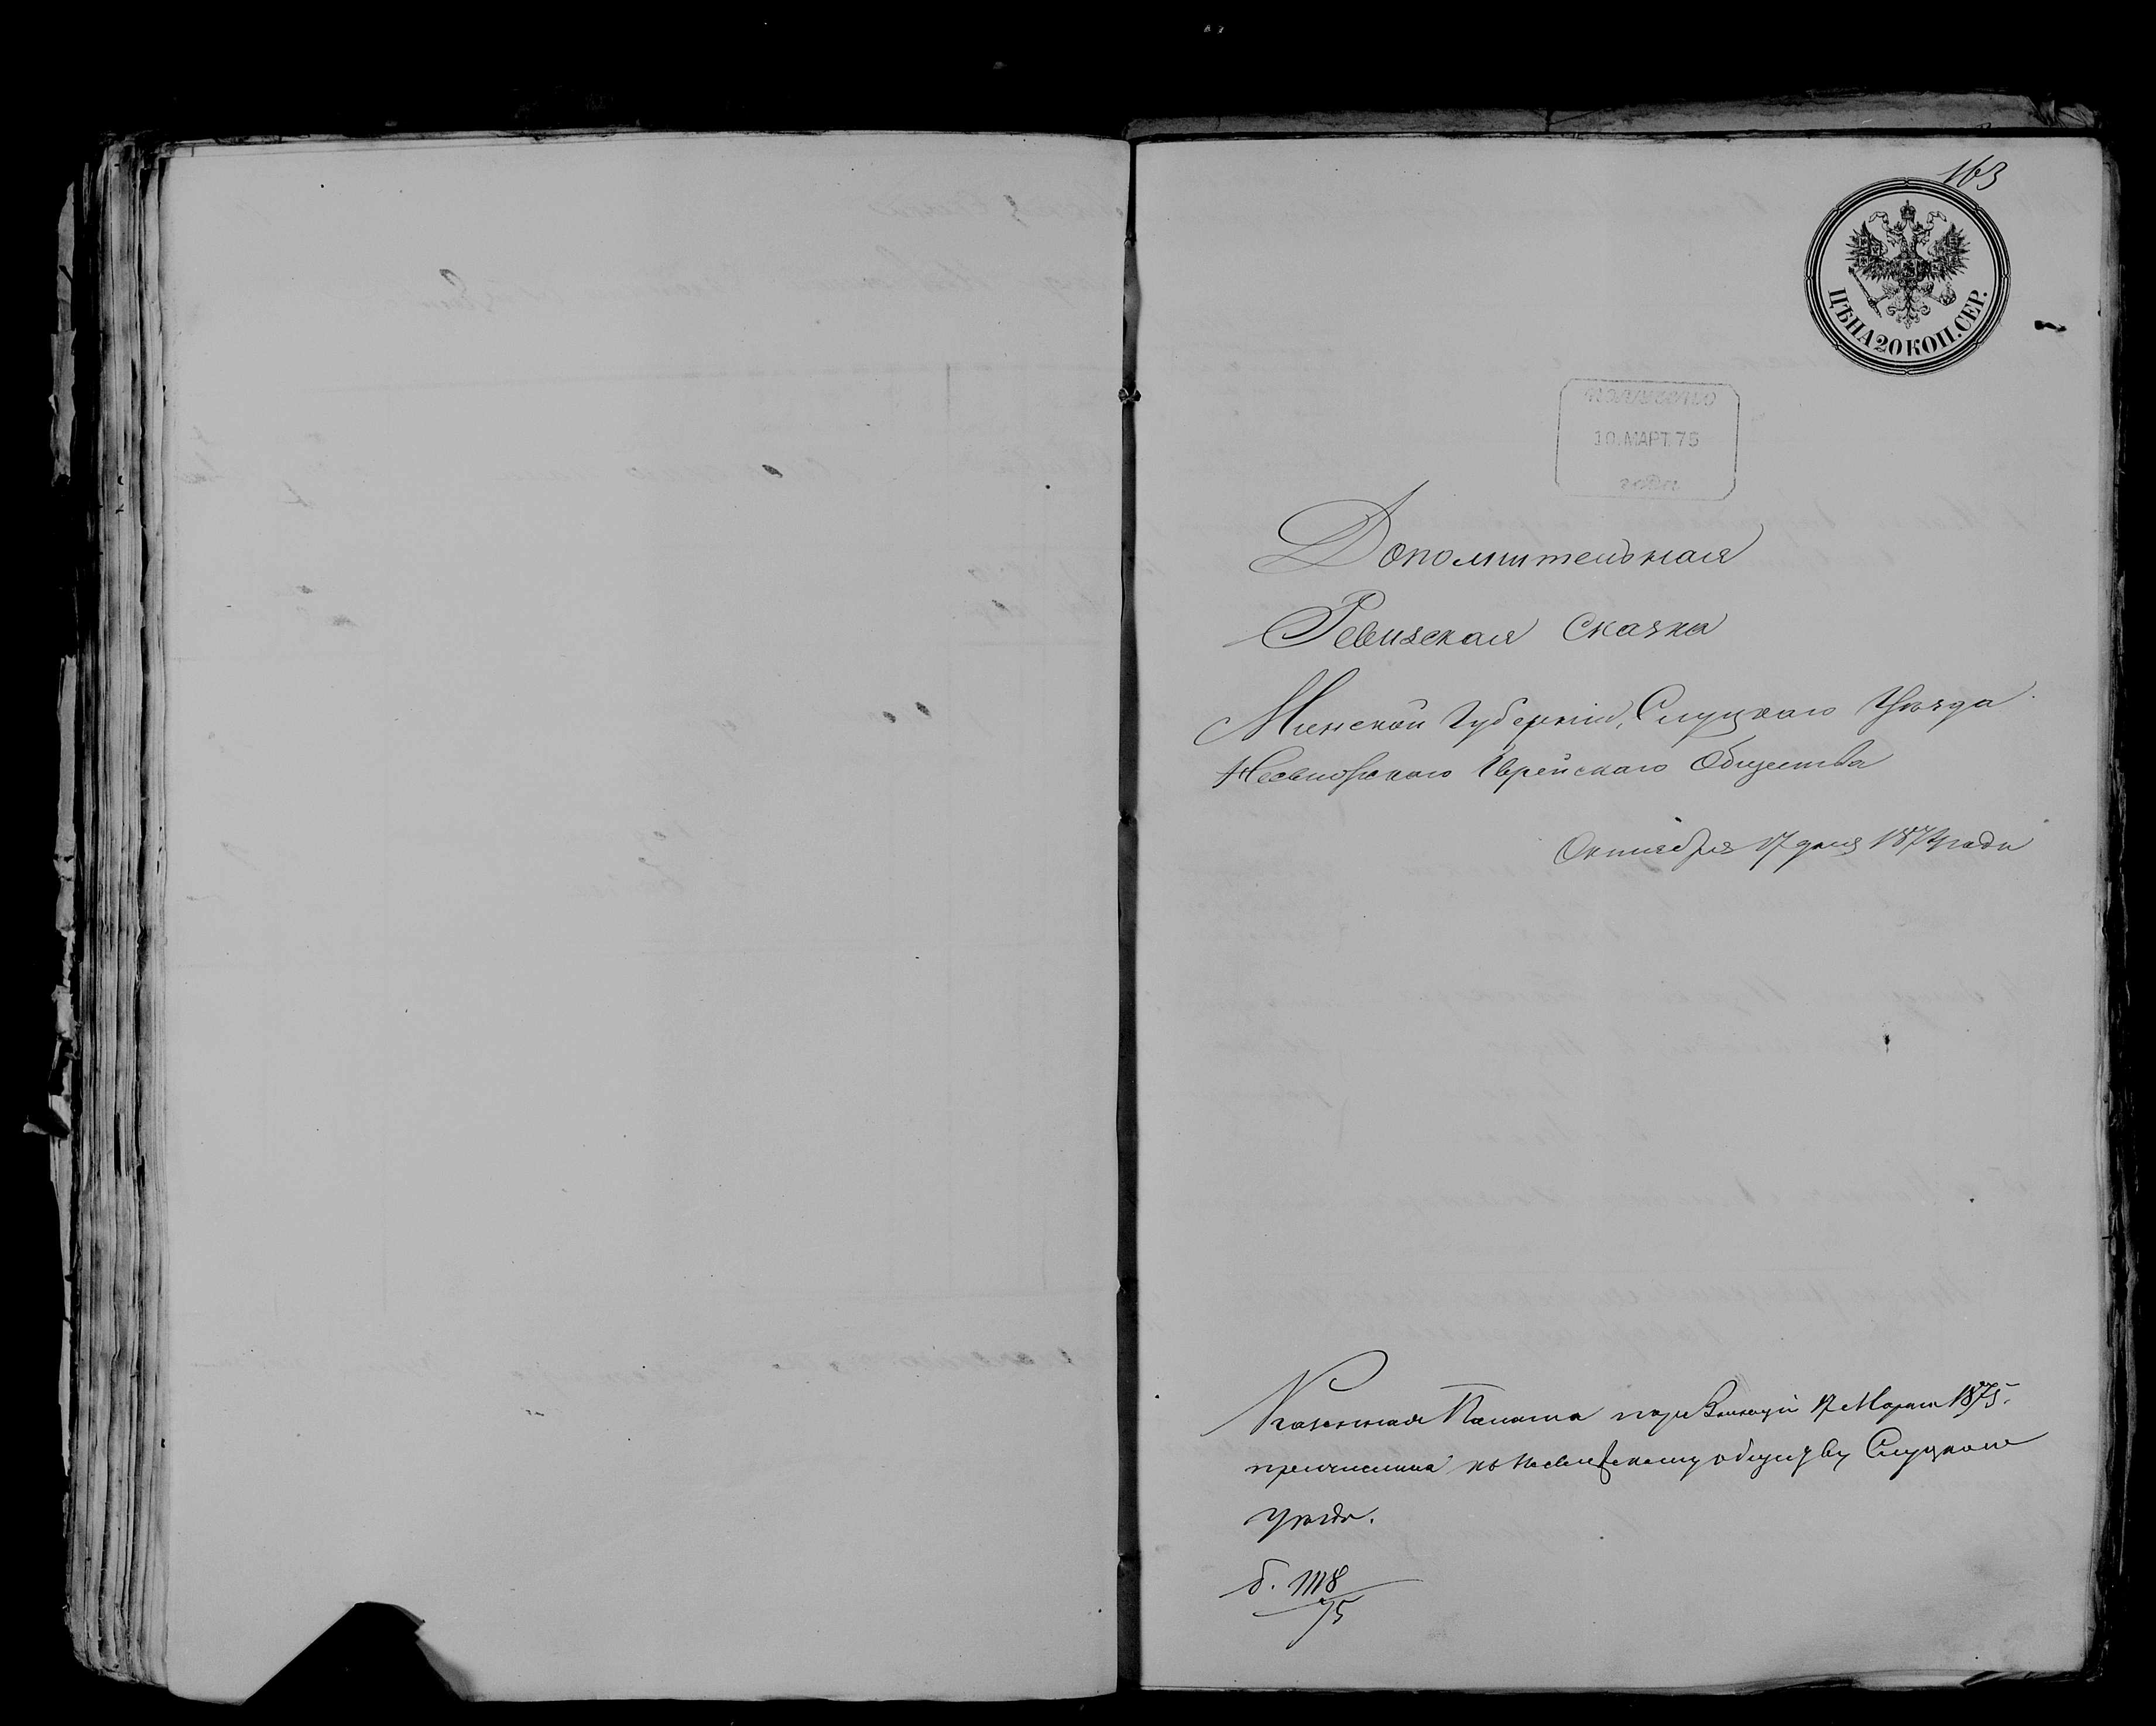 163
ЦѢНА 20 КОП. СЕР.
ПОЛУЧЕНО
10. МАРТ. 75
года
Дополнительная
Ревизская Сказка
Минской Губерніи, Слуцкаго Уѣзда
Несвижскаго Еврейскаго Общества
Октября 17 дня 1874 года
Казенная Палата 17 Марта 1875 г.
причислила къ Несвижскому обществу Слуцкаго
уѣзда.